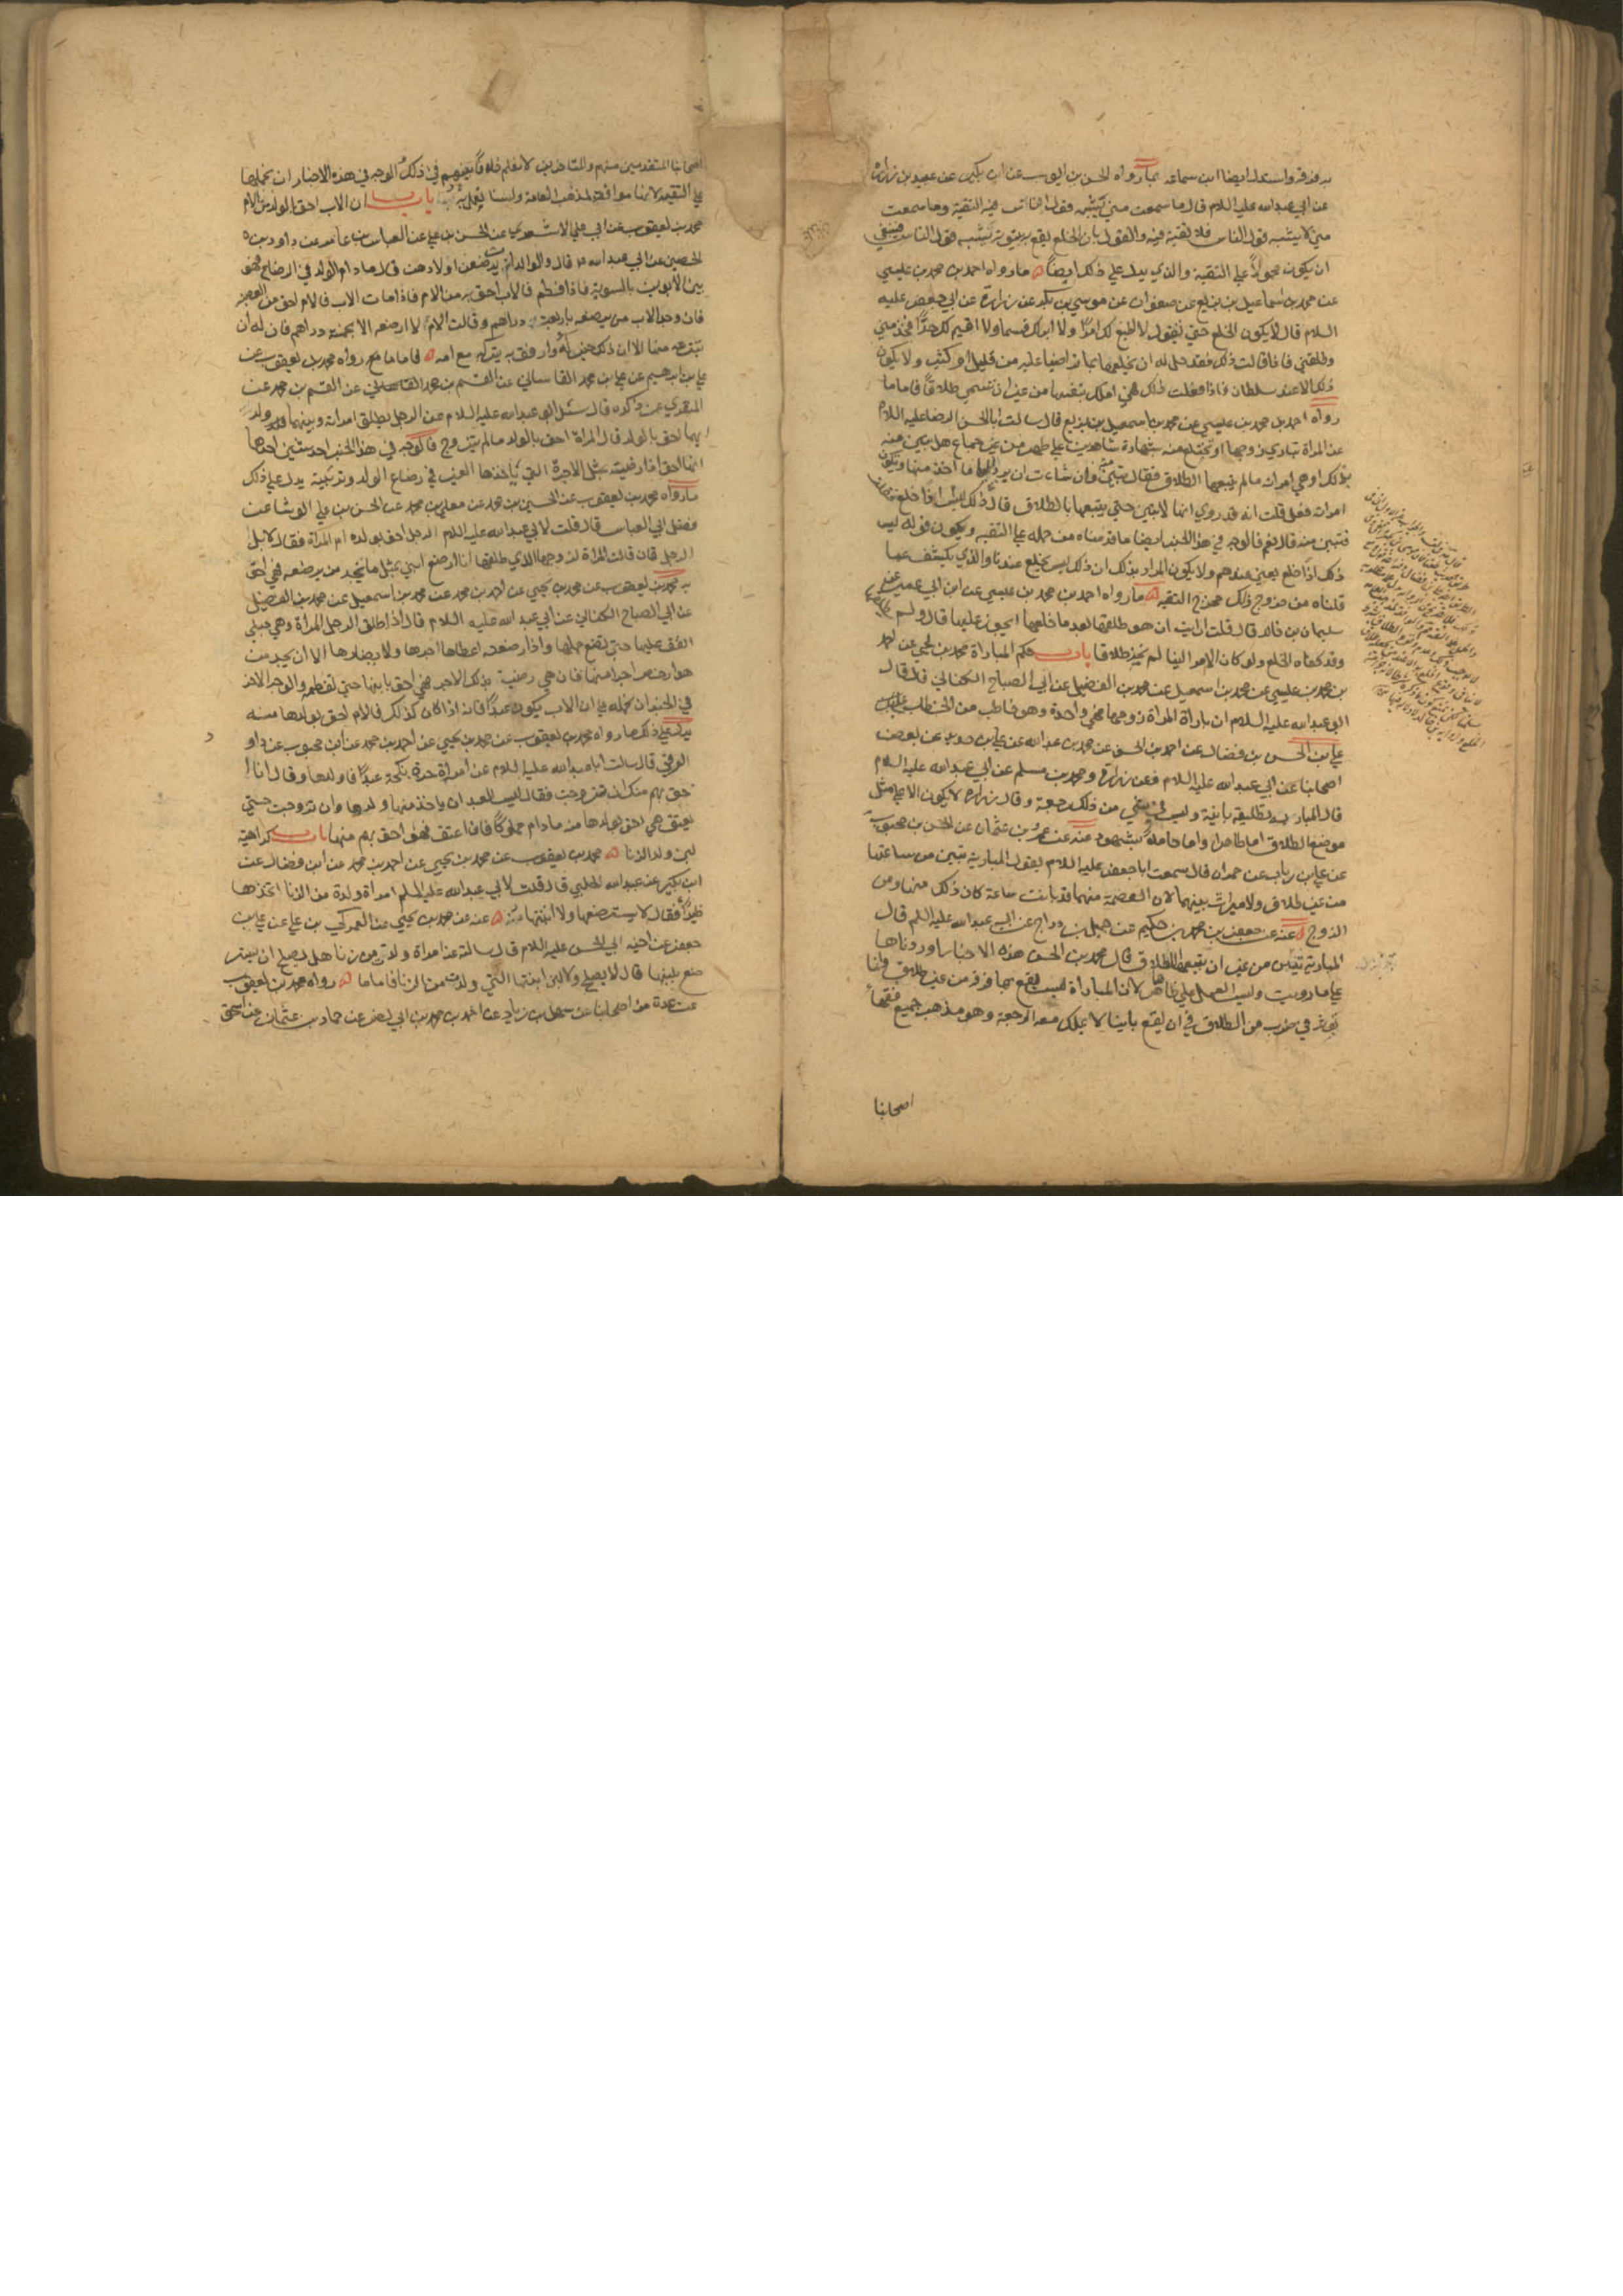 به فرقة واستدل ايضا ابن سماعه بما رواه الحسن بن ايوب عن ابن بكير عن عبيد بن زرارة
عن ابي عبدالله عليه السلام قال ما سمعت مني يشبه قول الناس فيه التقية وما سمعت
مني لا يشبه قول الناس فلا تقية فيه والقول بان الخلع يقع به بينونة يشبه قول الناس فينبغي
ان يكون محمولاً علي التقية والذي يدل علي ذلك ايضاً ما رواه احمد بن محمد بن عيسي
عن محمد بن اسماعيل بن بزيع عن صفوان عن موسي بن بكر عن زرارة عن ابي جعفر عليه
السلام قال لا يكون الخلع حتي تقول لا اطيع لك امراً ولا ابر لك قسما ولا اقيم لك حداً فخذ مني
وطلقني فاذا قالت ذلك فقد حل له ان يخلعها بما تراضيا عليه من قليل او كثير ولا يكون
ذلك الا عند سلطان فاذا فعلت ذلك فهي املك بنفسها من غير ان تسمي طلاقاً فاما ما
رواه احمد بن محمد بن عيسي عن محمد بن اسمعيل بن بزيع قال سالت ابا الحسن الرضا عليه السلام
عن المراة تباري زوجها او تختلع منه بشهادة شاهدين علي طهر من غير جماع هل تبين منه
بذلك او هي امراته ما لم يتبعها الطلاق فقال تبين منه وان شاءت ان يرد اليها ما اخذ منها وتكون
امراته فعل قلت انه قد روي انها لا تبين حتي يتبعها بالطلاق قال ليس ذلك اذاً خلع
فتبين منه قال نعم فالوجه في هذا الخبر ايضا ما قدمناه من حمله علي التقية ويكون قوله ليس
ذلك اذاً خلع يعني عندهم ولا يكون المراد بذلك ان ذلك ليس بخلع عندنا والذي يكشف عما
قلناه من خروج ذلك مخرج التقية ما رواه احمد بن محمد بن عيسي عن ابن ابي عمير عن
سليمان بن خالد قال قلت ارايت ان هو طلقها بعد ما خلعها ايجوز عليها قال ولم
وقد كفاه الخلع ولو كان الامر الينا لم نجز طلاقا باب حكم المباراة محمد بن يحيي عن احمد
بن محمد بن عيسي عن محمد بن اسمعيل عن محمد بن الفضيل عن ابي الصباح الكناني قال قال
ابو عبدالله عليه السلام ان بارات المراة زوجها فهي واحدة وهو خاطب من الخطاب
علي بن الحسن بن فضال عن احمد بن الحسن عن محمد بن عبدالله عن علي بن حديد عن بعض
اصحابنا عن ابي عبدالله عليه السلام وعن زرارة ومحمد بن مسلم عن ابي عبدالله عليه السلام
قال المباراة تطليقة باينة وليس في شيء من ذلك رجعة وقال زرارة لا يكون الا علي مثل
موضع الطلاق اما طاهرا واما حاملا بشهود عنه عن عمرو بن عثمان عن الحسن بن محبوب
عن علي بن رياب عن حمران قال سمعت ابا جعفر عليه السلام يقول المبارية تبين من ساعتها
من غير طلاق ولا ميراث بينهما لان العصمة منهما قد بانت ساعة كان ذلك منها ومن
الزوج عنه عن جعفر بن محمد بن حكيم عن جميل بن دراج عن ابي عبدالله عليه السلام قال
المبارية تبين من غير ان يتبعها الطلاق قال محمد بن الحسن هذه الاخبار اوردناها
علي ما رويت وليس العمل علي ظاهرها لان المباراة ليس يقع بها فرقة من غير طلاق وانما
تؤثر في ضرب من الطلاق في ان يقع باينا لا يملك معه الرجعة وهو مذهب جميع فقهاء
اصحابنا
اصحابنا المتقدمين منهم والمتاخرين لا نعلم خلافاً بينهم في ذلك والوجه في هذه الاخبار ان نحملها
علي التقية لانها موافقة لمذهب العامة ولسنا نعمل به باب ان الاب احق بالولد من الام
محمد بن يعقوب عن ابي علي الاشعري عن الحسن بن علي عن العباس بن عامر عن داود بن
الحصين عن ابي عبدالله ع قال والوالدات يرضعن اولادهن قال ما دام الولد في الرضاع فهو
بين الابوين بالسوية فاذا فطم فالاب احق به من الام فاذا مات الاب فالام احق من العصبة
فان وجد الاب من يرضعه باربعة دراهم وقالت الام لا ارضعه الا بخمسة دراهم فان له ان
ينزعه منها الا ان ذلك خير له وارفق به يتركه مع امه فاما ما رواه محمد بن يعقوب عن
علي بن ابراهيم عن علي بن محمد القاساني عن القسم بن محمد عن
المنقري عمن ذكره قال سئل ابو عبدالله عليه السلام عن الرجل يطلق امراته وبينهما ولد
ايهما احق بالولد قال المراة احق بالولد ما لم تتزوج فالوجه في هذا الخبر احد شيئين احدهما
انها احق اذا رضيت بمثل الاجرة التي ياخذها الغير في رضاع الولد وتربيته يدل علي ذلك
ما رواه محمد بن يعقوب عن الحسين بن محمد عن معلي بن محمد عن الحسن بن علي الوشا عن
فضل ابي العباس قال قلت لابي عبدالله عليه السلام الرجل احق بولده ام المراة فقال لا بل
الرجل فان قالت المراة لزوجها الذي طلقها انا ارضع ابني بمثل ما تجد من يرضعه فهي احق
به محمد بن يعقوب عن محمد بن يحيي عن احمد بن محمد عن محمد بن اسمعيل عن محمد بن الفضيل
عن ابي الصباح الكناني عن ابي عبدالله عليه السلام قال اذا طلق الرجل المراة وهي حبلي
انفق عليها حتي تضع حملها واذا ارضعته اعطاها اجرها ولا يضارها الا ان يجد من
هو ارخص اجرا منها فان هي رضيت بذلك الاجر فهي احق بابنها حتي تفطمه والوجه الاخر
في الخبر ان نحمله علي ان الاب يكون عبداً فانه اذا كان كذلك فالام احق بولدها منه
يدل علي ذلك ما رواه محمد بن يعقوب عن محمد بن يحيي عن احمد بن محمد عن ابن محبوب عن داود
الرقي قال سالت ابا عبدالله عليه السلام عن امراة حرة نكحت عبداً فاولدها وقال انا ا
حق بهم منك ان تزوجت فقال ليس للعبد ان ياخذ منها ولدها وان تزوجت حتي
يعتق هي احق بولدها منه ما دام مملوكاً فاذا اعتق فهو احق بهم منها باب كراهية
لبن ولد الزنا محمد بن يعقوب عن محمد بن يحيي عن احمد بن محمد عن ابن فضال عن
ابن بكير عن عبيد الله الحلبي قال قلت لابي عبدالله عليه السلم امراة ولدت من الزنا اتخذها
ظيراً فقال لا تسترضعها ولا ابنتها عنه عن محمد بن يحيي عن العمركي بن علي عن علي بن
جعفر عن اخيه ابي الحسن عليه السلام قال سالته عن امراة ولدت من زنا هل يصلح ان يستر
ضع بلبنها قال لا يصلح ولا لبن ابنتها التي ولدت من الزنا فاما ما رواه محمد بن يعقوب
عن عدة من اصحابنا عن سهل بن زياد عن احمد بن محمد بن ابي نصر عن حماد بن عثمان عن اسحق